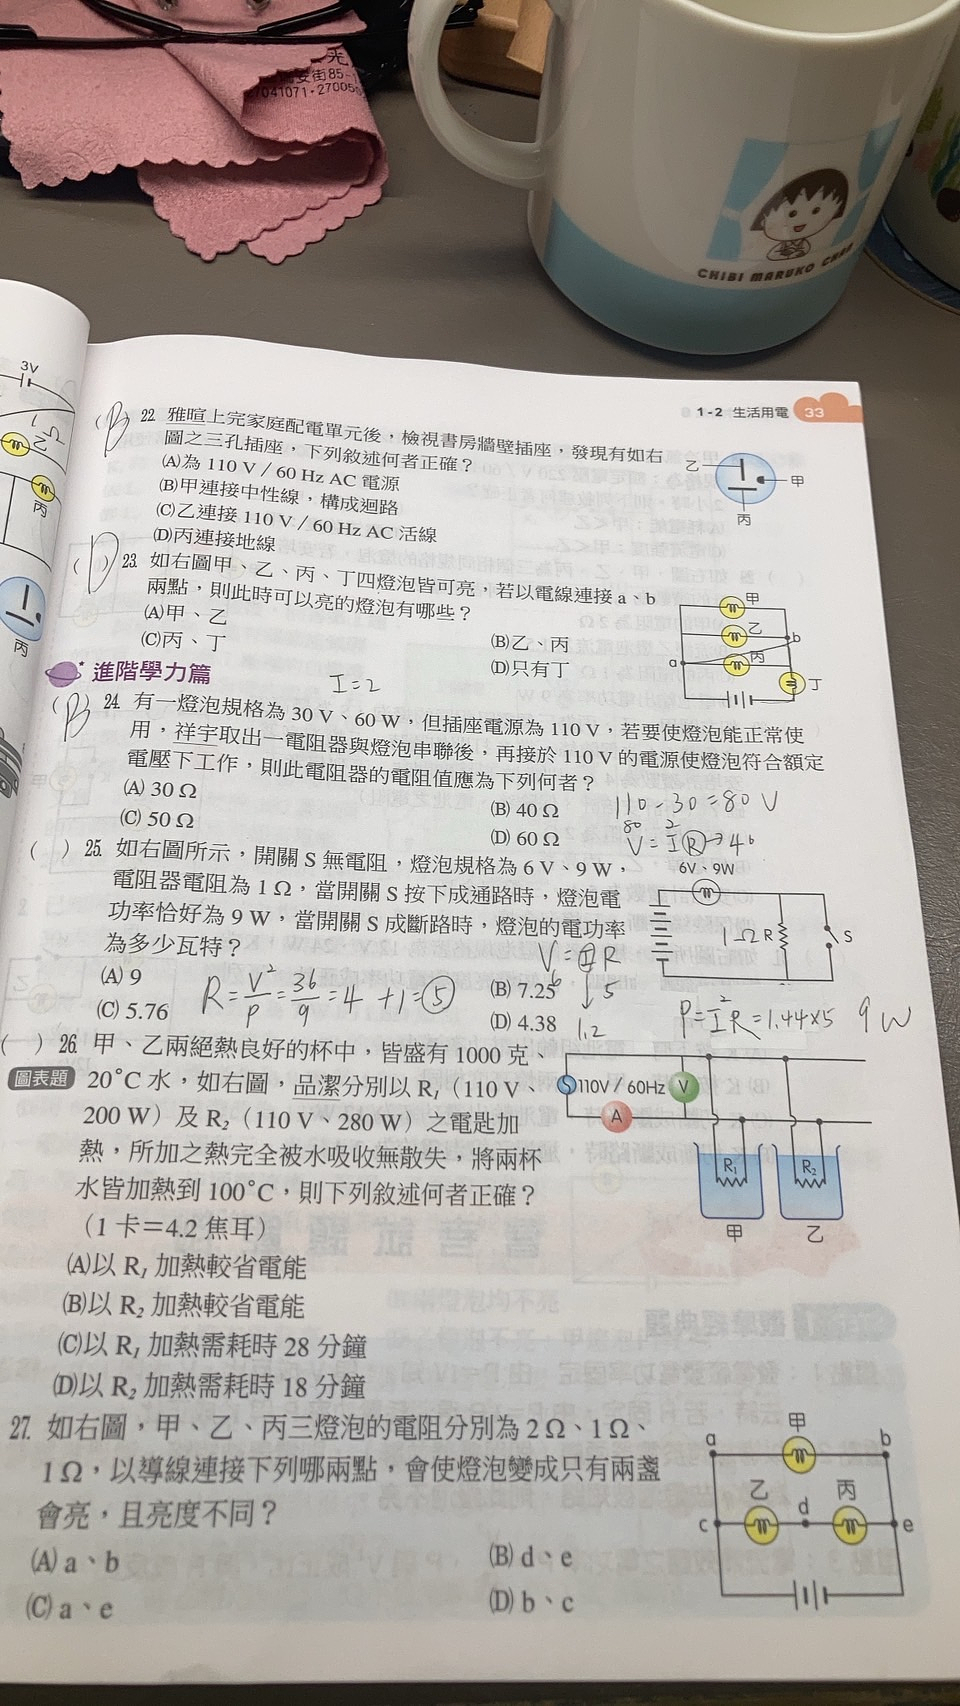 光
安街85-1
7041071·270050
CHIBI MARUKO CHAN
3V
1Ω
乙
丙
丙
1-2 生活用電 33
(B) 22. 雅暄上完家庭配電單元後，檢視書房牆壁插座，發現有如右
圖之三孔插座，下列敘述何者正確？
(A)為 110 V／60 Hz AC 電源
(B)甲連接中性線，構成迴路
(C)乙連接 110 V／60 Hz AC 活線
(D)丙連接地線
乙
甲
丙
(D) 23. 如右圖甲、乙、丙、丁四燈泡皆可亮，若以電線連接 a、b
兩點，則此時可以亮的燈泡有哪些？
(A)甲、乙
(B)乙、丙
(C)丙、丁
(D)只有丁
甲
乙
b
丙
a
丁
進階學力篇
I=2
(B) 24. 有一燈泡規格為 30 V、60 W，但插座電源為 110 V，若要使燈泡能正常使
用，祥宇取出一電阻器與燈泡串聯後，再接於 110 V 的電源使燈泡符合額定
電壓下工作，則此電阻器的電阻值應為下列何者？
(A) 30 Ω
(B) 40 Ω
(C) 50 Ω
(D) 60 Ω
110-30=80V
80 2
V=IR→40
( ) 25. 如右圖所示，開關 S 無電阻，燈泡規格為 6 V、9 W，
電阻器電阻為 1 Ω，當開關 S 按下成通路時，燈泡電
功率恰好為 9 W，當開關 S 成斷路時，燈泡的電功率
為多少瓦特？
(A) 9
(B) 7.25
(C) 5.76
(D) 4.38
6V、9W
1Ω R
S
V=IR
6 5
1.2
R=V²/P=36/9=4 +1=5
P=I²R=1.44×5 9W
( ) 26. 甲、乙兩絕熱良好的杯中，皆盛有 1000 克、
圖表題 20°C 水，如右圖，品潔分別以 R₁（110 V、
200 W）及 R₂（110 V、280 W）之電匙加
熱，所加之熱完全被水吸收無散失，將兩杯
水皆加熱到 100°C，則下列敘述何者正確？
（1 卡＝4.2 焦耳）
(A)以 R₁ 加熱較省電能
(B)以 R₂ 加熱較省電能
(C)以 R₁ 加熱需耗時 28 分鐘
(D)以 R₂ 加熱需耗時 18 分鐘
S 110V／60HZ V
A
R₁
R₂
甲
乙
27. 如右圖，甲、乙、丙三燈泡的電阻分別為 2 Ω、1 Ω、
1 Ω，以導線連接下列哪兩點，會使燈泡變成只有兩盞
會亮，且亮度不同？
(A) a、b
(B) d、e
(C) a、e
(D) b、c
a
甲
b
乙
d
丙
c
e